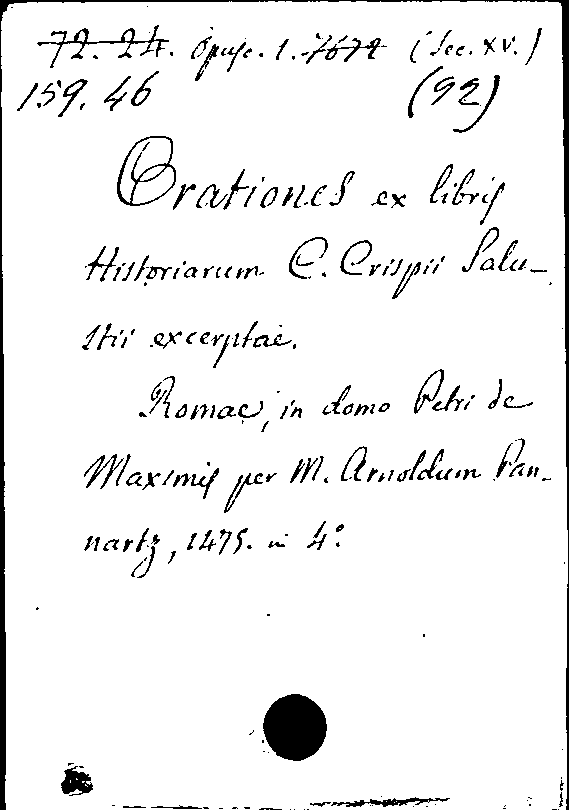 72. 24. Opusc. 1. 7672 (Sec. XV.)
159. 46 (92)
Orationes ex libris
Historiarum C. Crispii Salu-
stii excerptae.
Romae, in domo Petri de
Maximis per M. Arnoldum Pan-
nartz, 1475. in 4°.